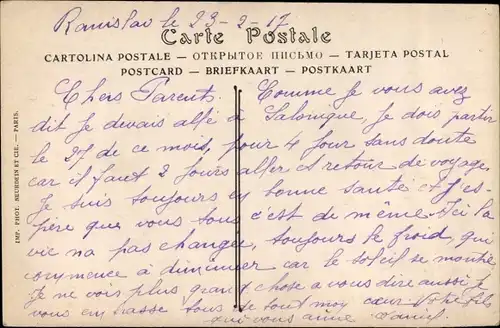 Ranislav le 23-2-17
Carte Postale
CARTOLINA POSTALE — ОТКРЫТОЕ ПИСЬМО — TARJETA POSTAL
POSTCARD — BRIEFKAART — POSTKAART
Chers Parents. Comme je vous avez
dit je devais allé à Salonique, je dois partir
le 27 de ce mois, pour 4 jour sans doute
car il faut 2 jours aller et retour de voyage,
Je suis toujours en bonne santé et j'es-
père que vous tous c'est de même. Ici la
vie na pas changée, toujours le froid, qui
commence à diminuer car le soleil se montre
Je ne vois plus grand chose a vous dire aussi je
vous embrasse tous de tout mon cœur. Votre fils
qui vous aime Daniel.
IMP. PHOT. NEURDEIN ET CIE. — PARIS.